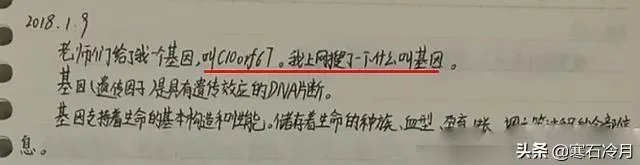 2018.1.9
老师们给了我一个基因,叫C10orf67。我上网搜了一下什么叫基因。
基因(遗传因子)是具有遗传效应的DNA片断。
基因支持着生命的基本构造和性能。储存着生命的种族、血型、孕育
息。
头条 @寒石冷月